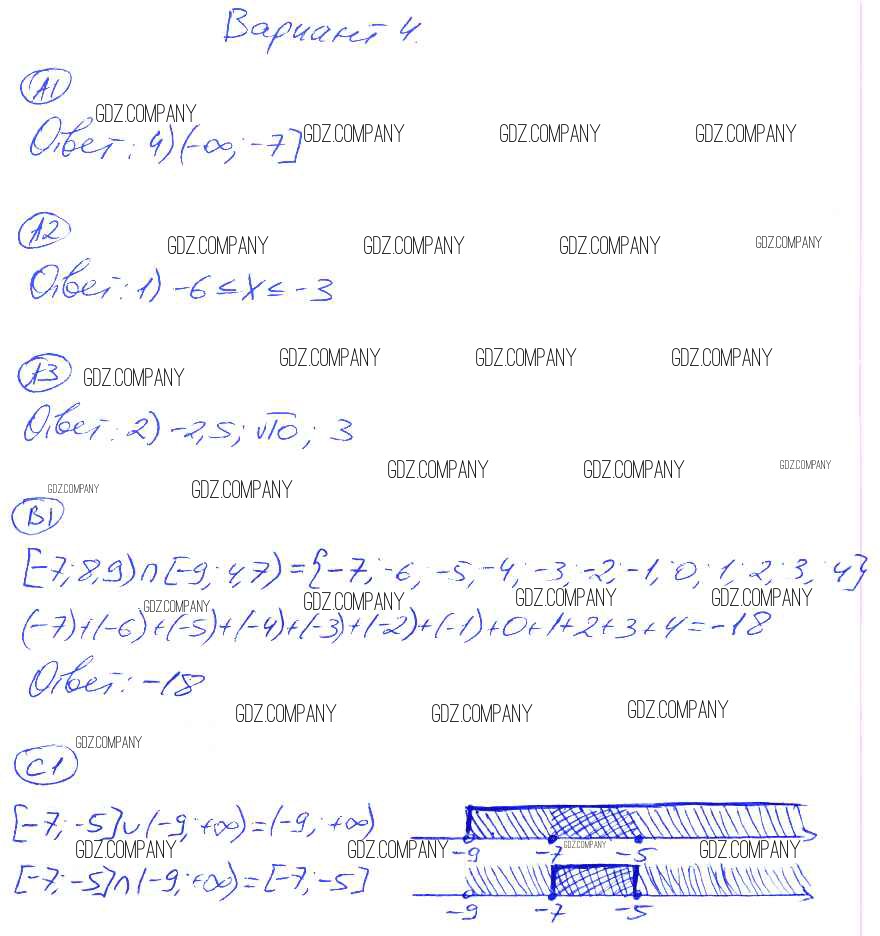 Вариант 4.
А1
GDZ.COMPANY
Ответ: 4) (-∞; -7]
GDZ.COMPANY GDZ.COMPANY GDZ.COMPANY
А2
GDZ.COMPANY GDZ.COMPANY GDZ.COMPANY GDZ.COMPANY
Ответ: 1) -6 ≤ x ≤ -3
А3
GDZ.COMPANY GDZ.COMPANY GDZ.COMPANY GDZ.COMPANY
Ответ: 2) -2,5; √10; 3
GDZ.COMPANY GDZ.COMPANY GDZ.COMPANY
GDZ.COMPANY GDZ.COMPANY
В1
[-7; 8,9) ∩ [-9; 4,7) = {-7; -6; -5; -4; -3; -2; -1; 0; 1; 2; 3; 4}
GDZ.COMPANY GDZ.COMPANY GDZ.COMPANY GDZ.COMPANY
(-7)+(-6)+(-5)+(-4)+(-3)+(-2)+(-1)+0+1+2+3+4=-18
Ответ: -18
GDZ.COMPANY GDZ.COMPANY GDZ.COMPANY
GDZ.COMPANY
С1
[-7; -5] ∪ (-9; +∞) = (-9; +∞)
-9 -7 -5
GDZ.COMPANY GDZ.COMPANY GDZ.COMPANY GDZ.COMPANY
[-7; -5] ∩ (-9; +∞) = [-7; -5]
-9 -7 -5